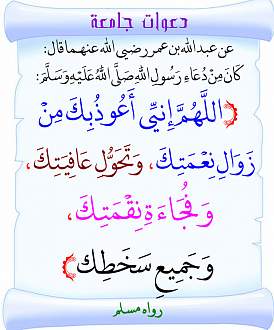 دعوات جامعة
عن عبدالله بن عمر رضي الله عنهما قال:
كَانَ مِنْ دُعَاءِ رَسُولِ اللهِ صَلَّى اللهُ عَلَيْهِ وَسَلَّمَ:
﴿اللَّهُمَّ إِنِّي أَعُوذُ بِكَ مِنْ
زَوَالِ نِعْمَتِكَ، وَتَحَوُّلِ عَافِيَتِكَ،
وَفُجَاءَةِ نِقْمَتِكَ،
وَجَمِيعِ سَخَطِكَ﴾
رواه مسلم